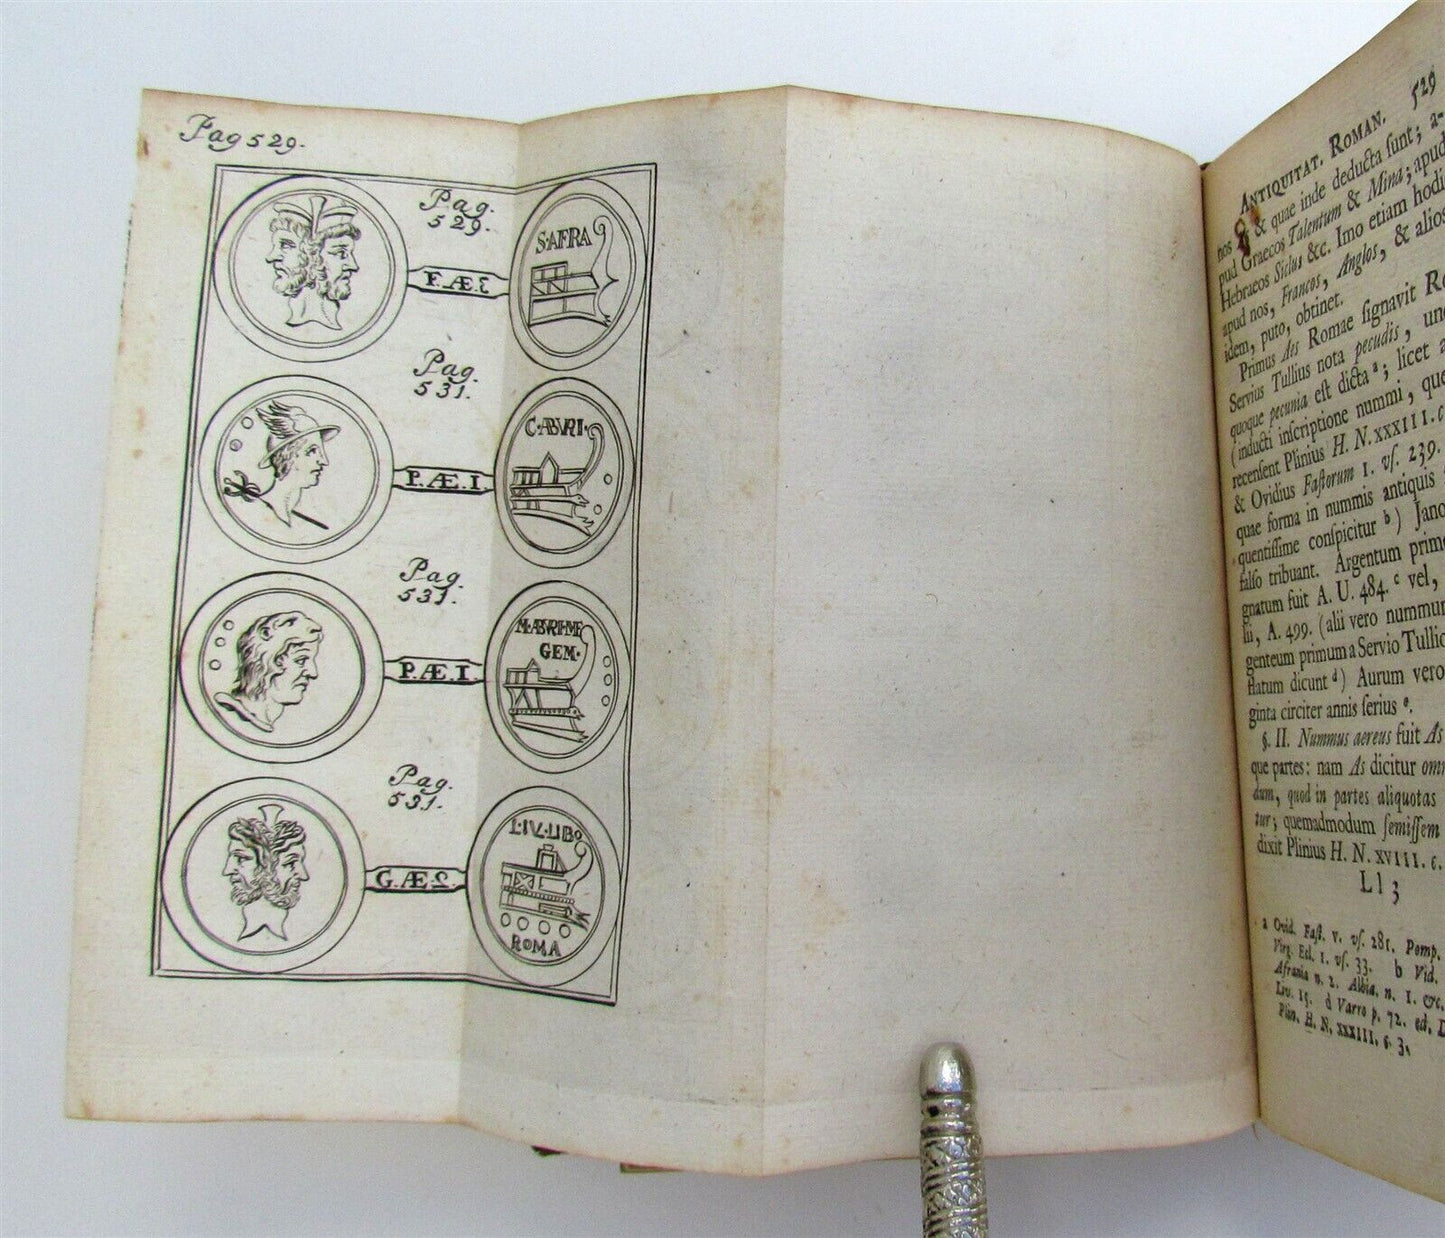 Pag 529.
Pag.
529.
F. Æ. 3
S·AFRA
Pag.
531.
P. Æ. I.
C·ABVRI·
Pag.
531.
P. Æ. I
M·ABVRI·M·F
GEM·
Pag.
531.
G. Æ. 2
L·IV·LIBO
ROMA
ANTIQUITAT. ROMAN. 529
nos & quae inde deducta ſunt; a-
pud Graecos Talentum & Mina; apud
Hebraeos Siclus &c. Imo etiam hodi
apud nos, Francos, Anglos, & alios
idem, puto, obtinet.
Primus Aes Romae ſignavit R
Servius Tullius nota pecudis, un
quoque pecunia eſt dicta ª; licet
(inducti inſcriptione nummi, que
recenſent Plinius H. N. XXXIII. c.
& Ovidius Faſtorum I. vſ. 239.
quae forma in nummis antiquis
quentiſſime conſpicitur ᵇ) Jano
falſo tribuant. Argentum prim
gnatum fuit A. U. 484. ᶜ vel,
lii, A. 499. (alii vero nummum
genteum primum a Servio Tullio
flatum dicunt ᵈ) Aurum vero
ginta circiter annis ſerius ᵉ.
§. II. Nummus aereus fuit As
que partes: nam As dicitur om
dum, quod in partes aliquotas
tur; quemadmodum ſemiſſem
dixit Plinius H. N. XVIII. c.
Ll 3
a Ovid. Faſt. V. vſ. 281. Pomp.
Virg. Ecl. 1. vſ. 33. b Vid.
Afrania n. 2. Albia. n. 1. &c.
Liv. 15. d Varro p. 72. ed. D
Plin. H. N. XXXIII. c. 3.